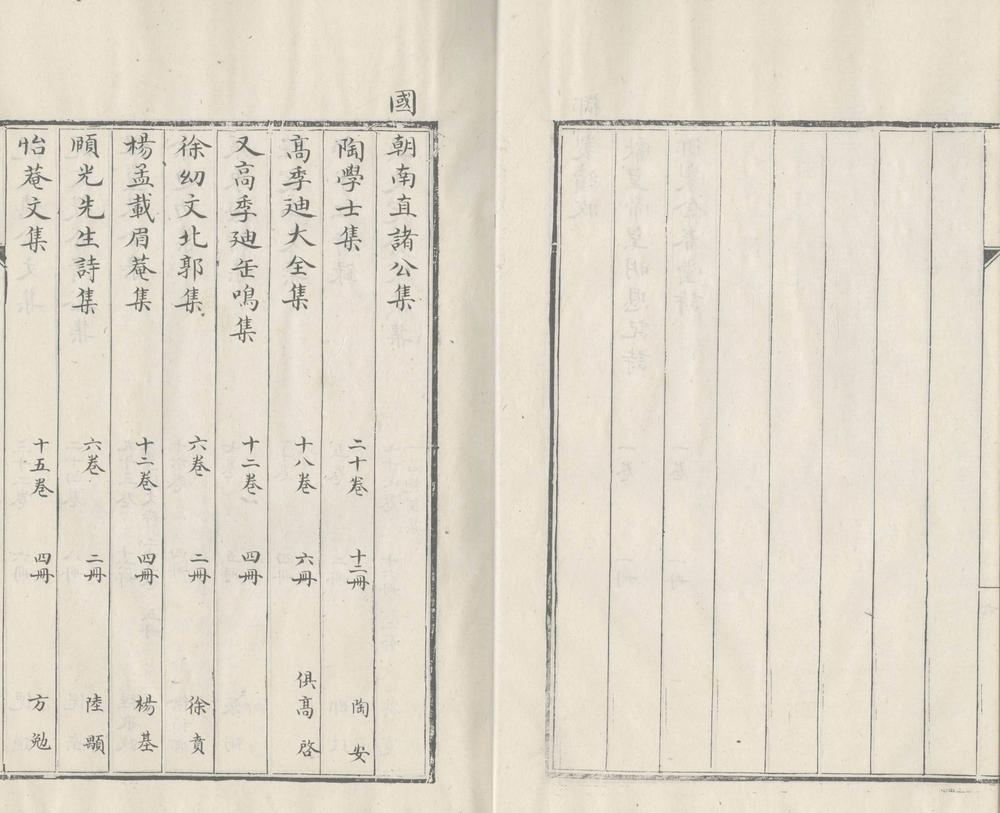 國朝南直諸公集
陶學士集 二十卷 十二冊 陶安
高季迪大全集 十八卷 六冊 俱高啓
又高季迪缶鳴集 十二卷 四冊
徐幼文北郭集 六卷 二冊 徐賁
楊孟載眉菴集 十二卷 四冊 楊基
頥光先生詩集 六卷 二冊 陸顒
怡菴文集 十五卷 四冊 方勉